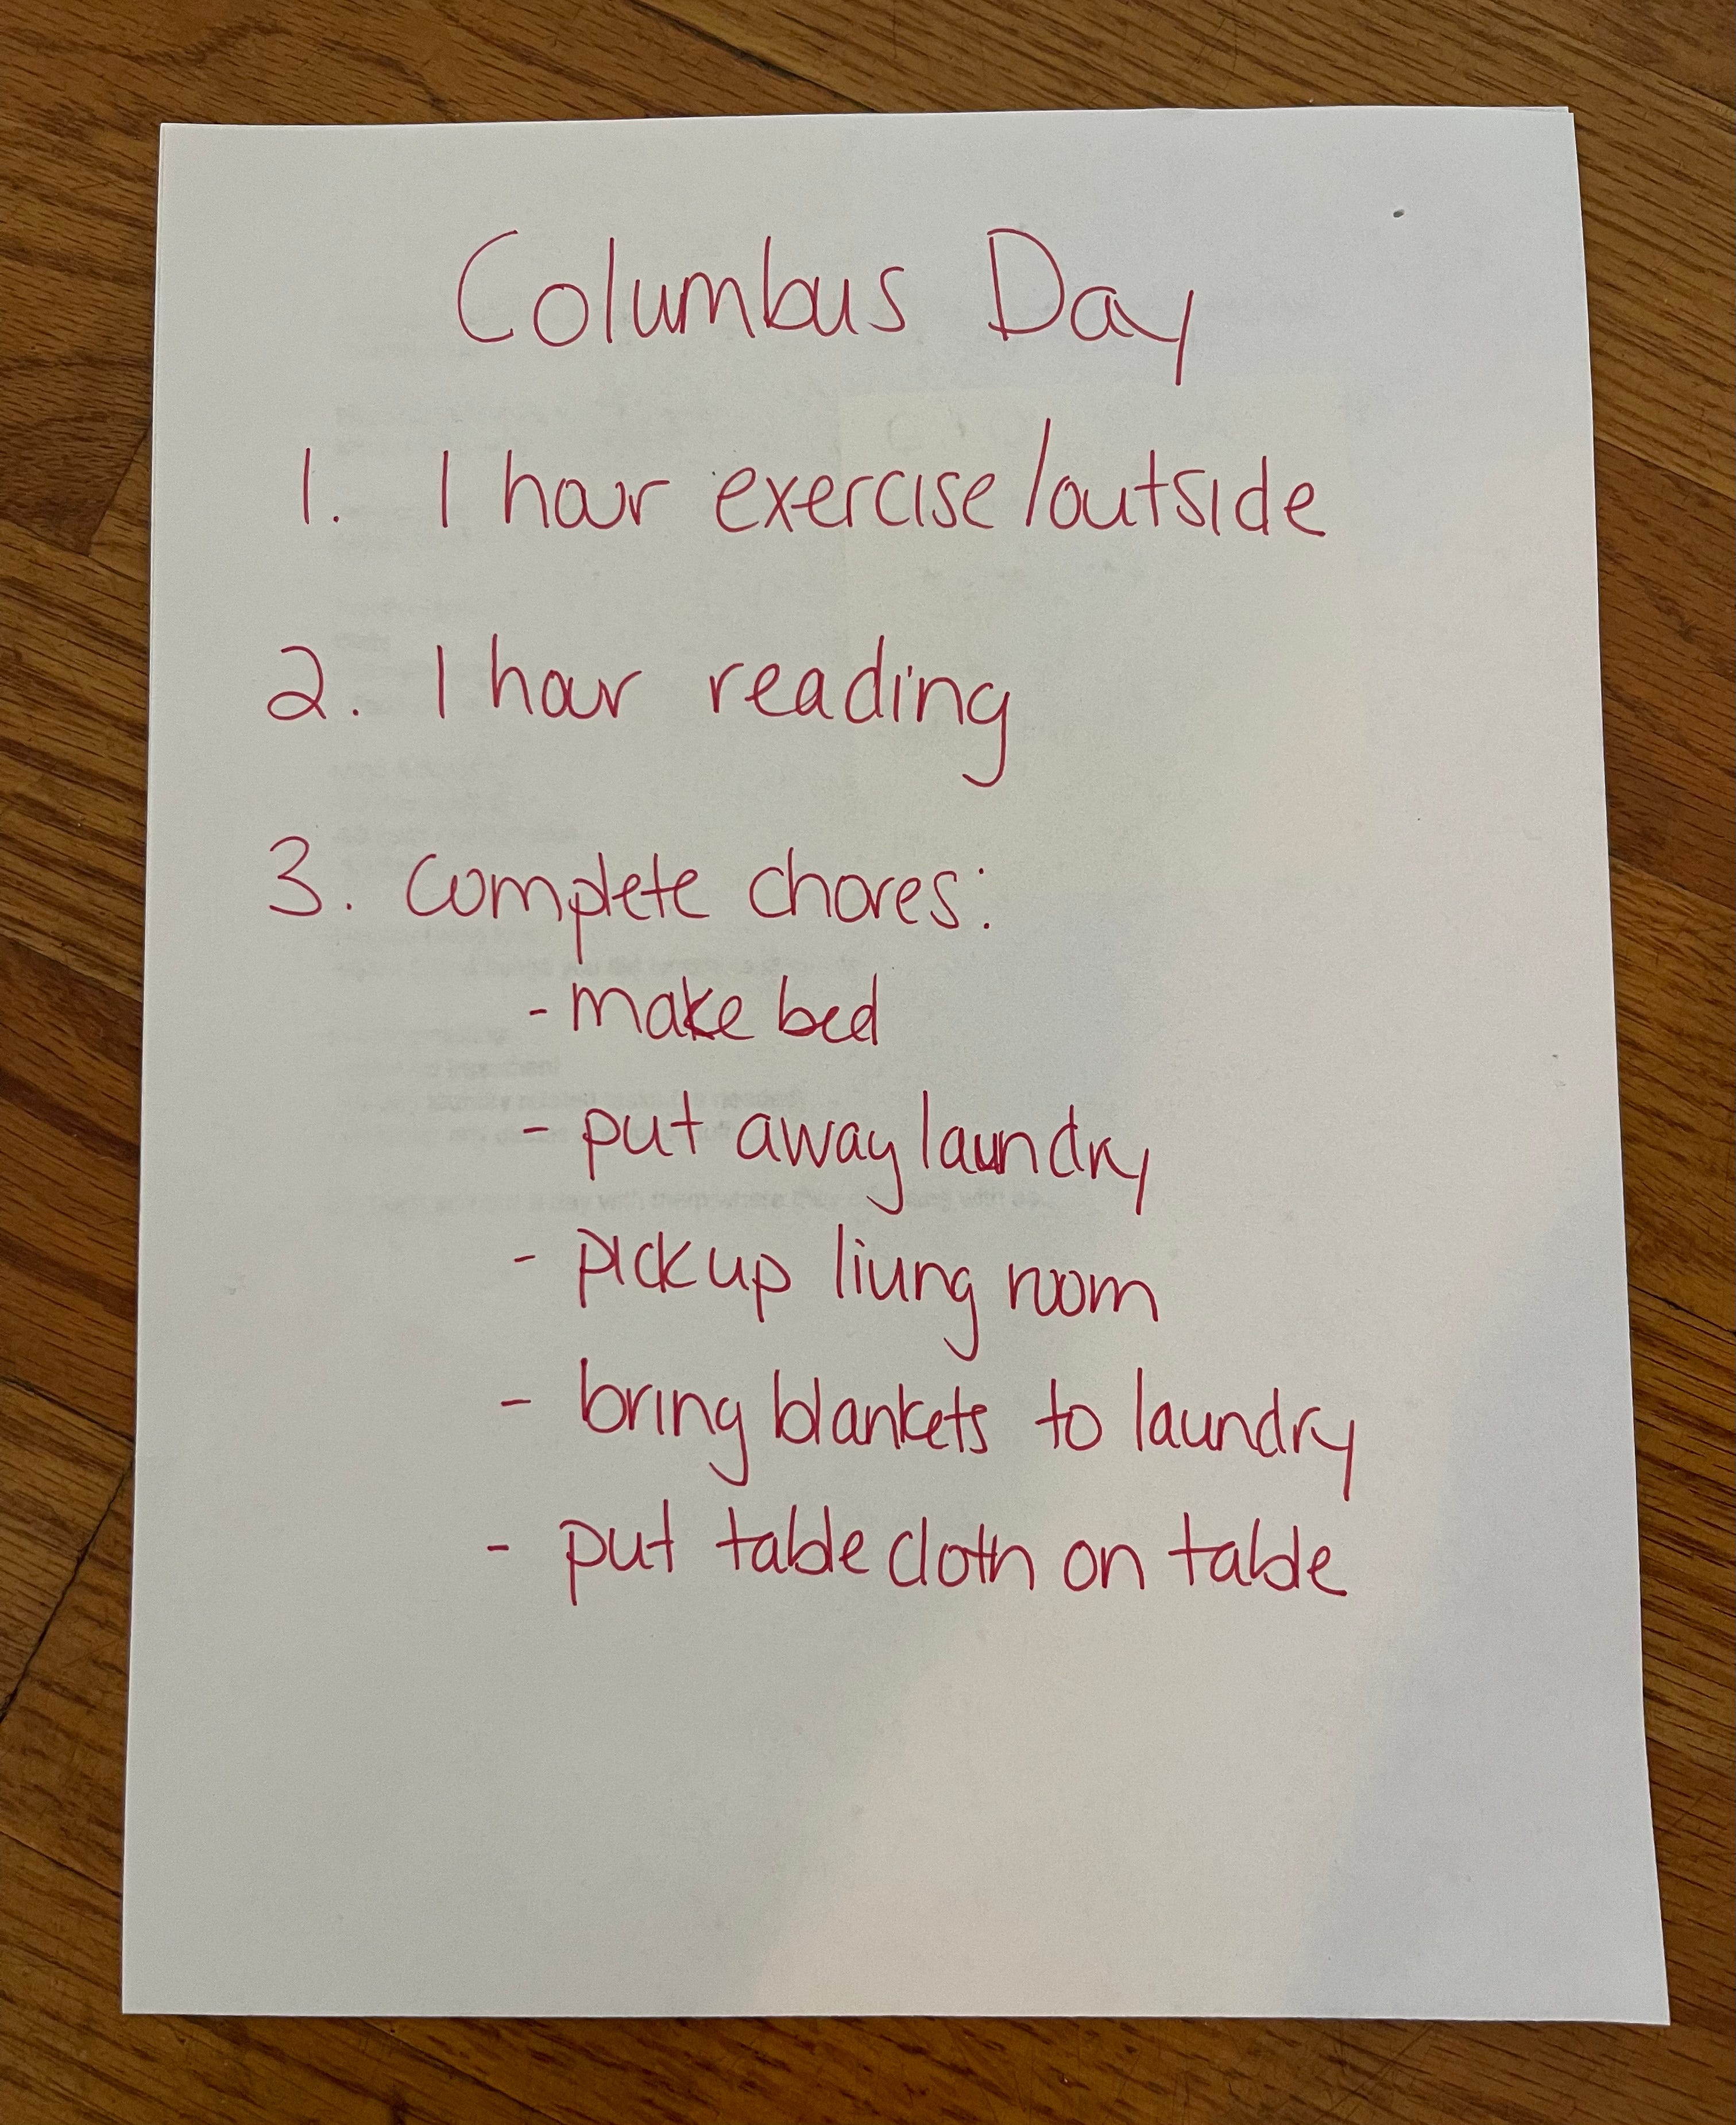 Columbus Day
1. 1 hour exercise/outside
2. 1 hour reading
3. complete chores:
- make bed
- put away laundry
- pick up living room
- bring blankets to laundry
- put table cloth on table